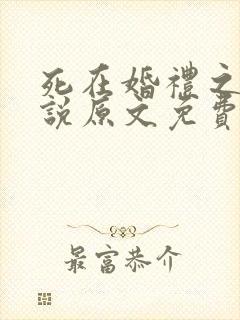 死在婚禮之
說原文免費
最富恭介